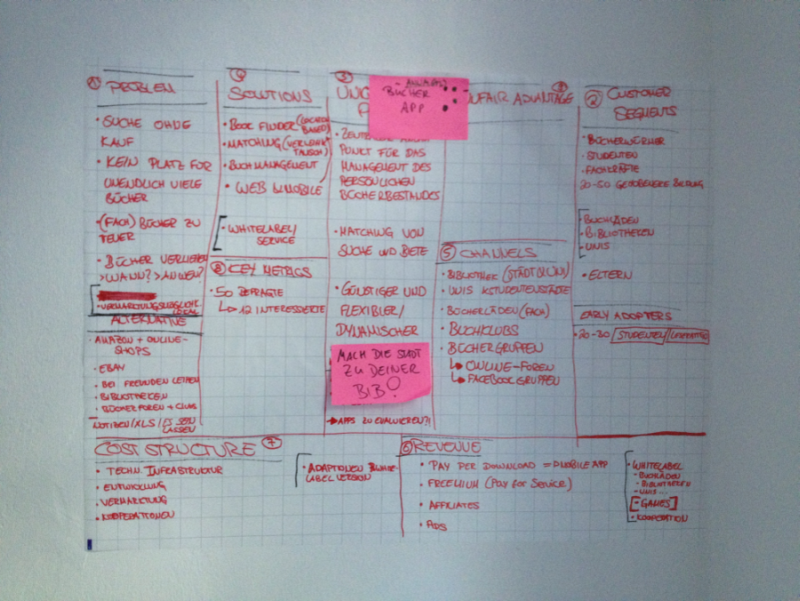 ① PROBLEM
• SUCHE OHNE
KAUF
• KEIN PLATZ FÜR
UNENDLICH VIELE
BÜCHER
• (FACH) BÜCHER ZU
TEUER
• BÜCHER VERLIEHEN
> WANN? > AN WEN?
ALTERNATIVE
• AMAZON + ONLINE-
SHOPS
• EBAY
• BEI FREUNDEN LEIHEN
• BIBLIOTHEKEN
• BÜCHERFOREN + CLUBS
NOTIZEN/XLS/ES SEIN
LASSEN
④
SOLUTIONS
• BOOK FINDER (LOCATION
BASED)
• MATCHING (VERLEIHEN
TAUSCH)
• BUCHMANAGEMENT
• WEB & MOBILE
• WHITELABEL/
SERVICE
⑧ KEY METRICS
• 50 BEFRAGTE
↳ 12 INTERESSIERTE
③
UNIQ
BÜCHER
APP
PUNKT FÜR DAS
MANAGEMENT DES
PERSÖNLICHEN
BÜCHERBESTANDES
• MATCHING VON
SUCHE UND BIETE
• GÜNSTIGER UND
FLEXIBLER/
DYNAMISCHER
MACH DIE STADT
ZU DEINER
BIB!
→ APPS ZU EVALUIEREN?!
⑨
UNFAIR ADVANTAGE
⑤ CHANNELS
• BIBLIOTHEK (STÄDT & UNI)
• UNIS & STUDENTENSTÄDTE
• BÜCHERLÄDEN (FACH)
• BUCHCLUBS
• BÜCHERGRUPPEN
↳ ONLINE-FOREN
↳ FACEBOOKGRUPPEN
② CUSTOMER
SEGMENTS
• BÜCHERWÜRMER
• STUDENTEN
• FACHKRÄFTE
20-50 GEHOBENERE BILDUNG
• BUCHLÄDEN
• BIBLIOTHEKEN
• UNIS
• ELTERN
EARLY ADOPTERS
• 20-30 STUDENTEN/
COST STRUCTURE ⑦
• TECHN. INFRASTRUKTUR
• ENTWICKLUNG
• VERMARKTUNG
• KOOPERATIONEN
• ADAPTIONEN
LABEL VERSION
⑥ REVENUE
• PAY PER DOWNLOAD = MOBILE APP
• FREEMIUM (PAY FOR SERVICE)
• AFFILIATES
• ADS
• WHITELABEL
- BUCHLÄDEN
- BIBLIOTHEKEN
- UNIS ...
[- GAMES]
• KOOPERATION